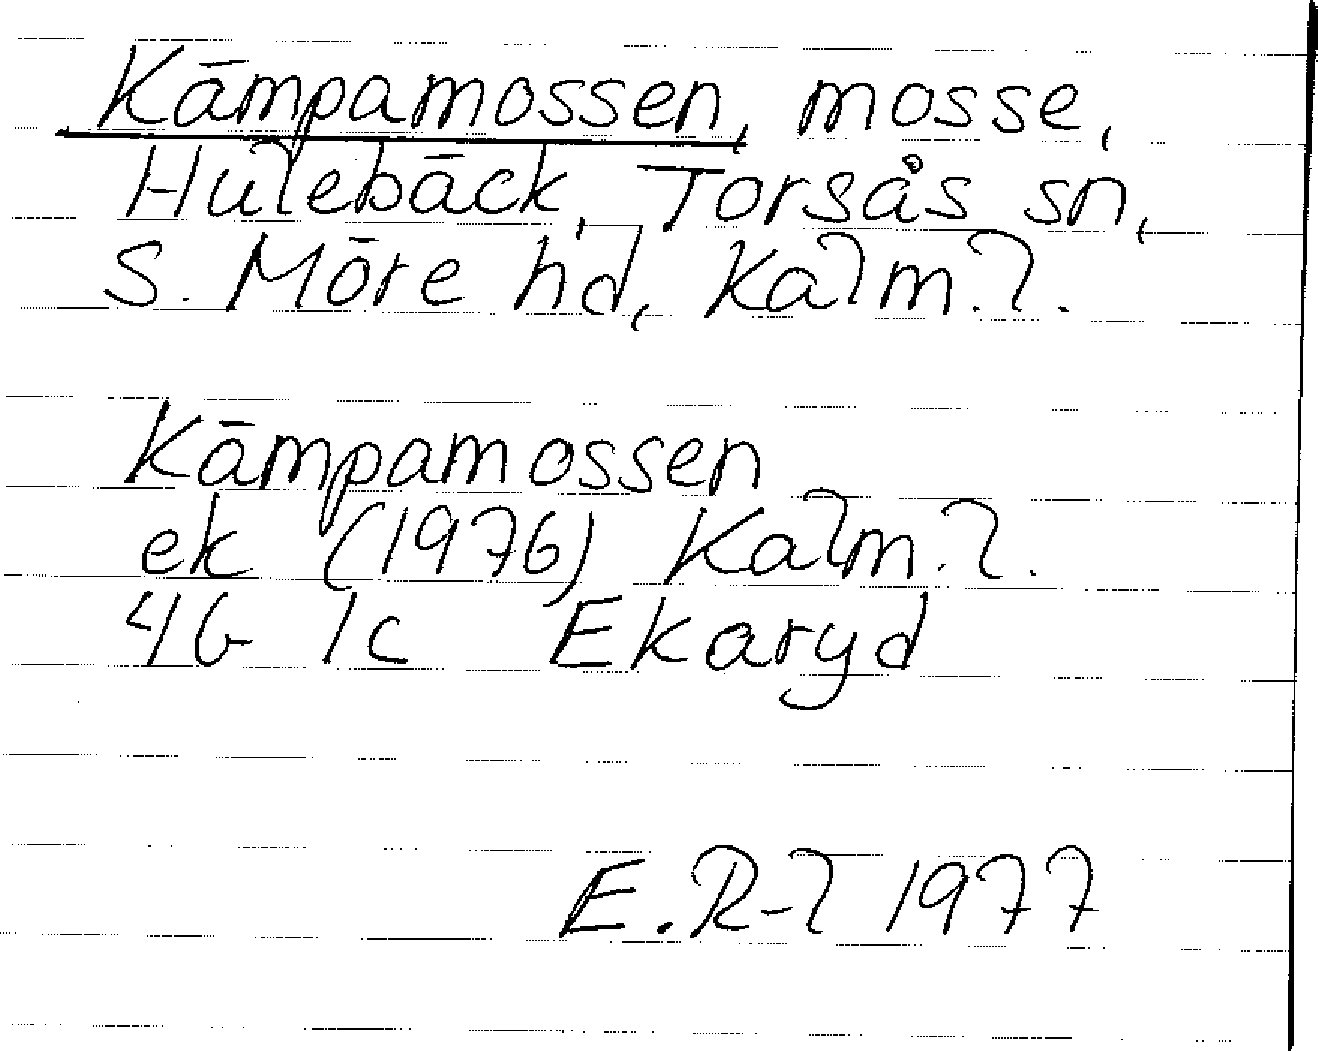 Kämpamossen, mosse,
Hulebäck, Torsås sn,
S. Möre hd, Kalm. l.
Kämpamossen
ek (1976) Kalm. l.
4G 1c Ekaryd
E. R-l 1977